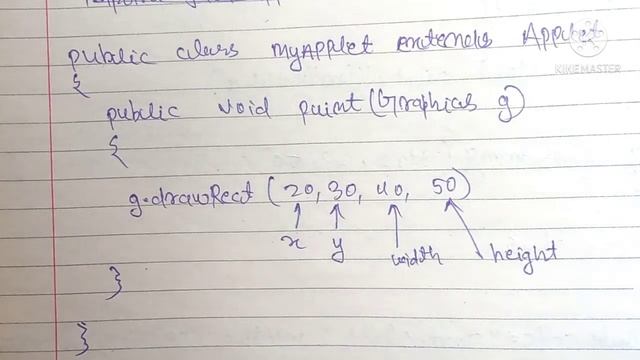 public class MyAPPlet extends Applet
KINEMASTER
{
public void paint(Graphics g)
{
g.drawRect (20, 30, 40, 50)
x y width height
}
}